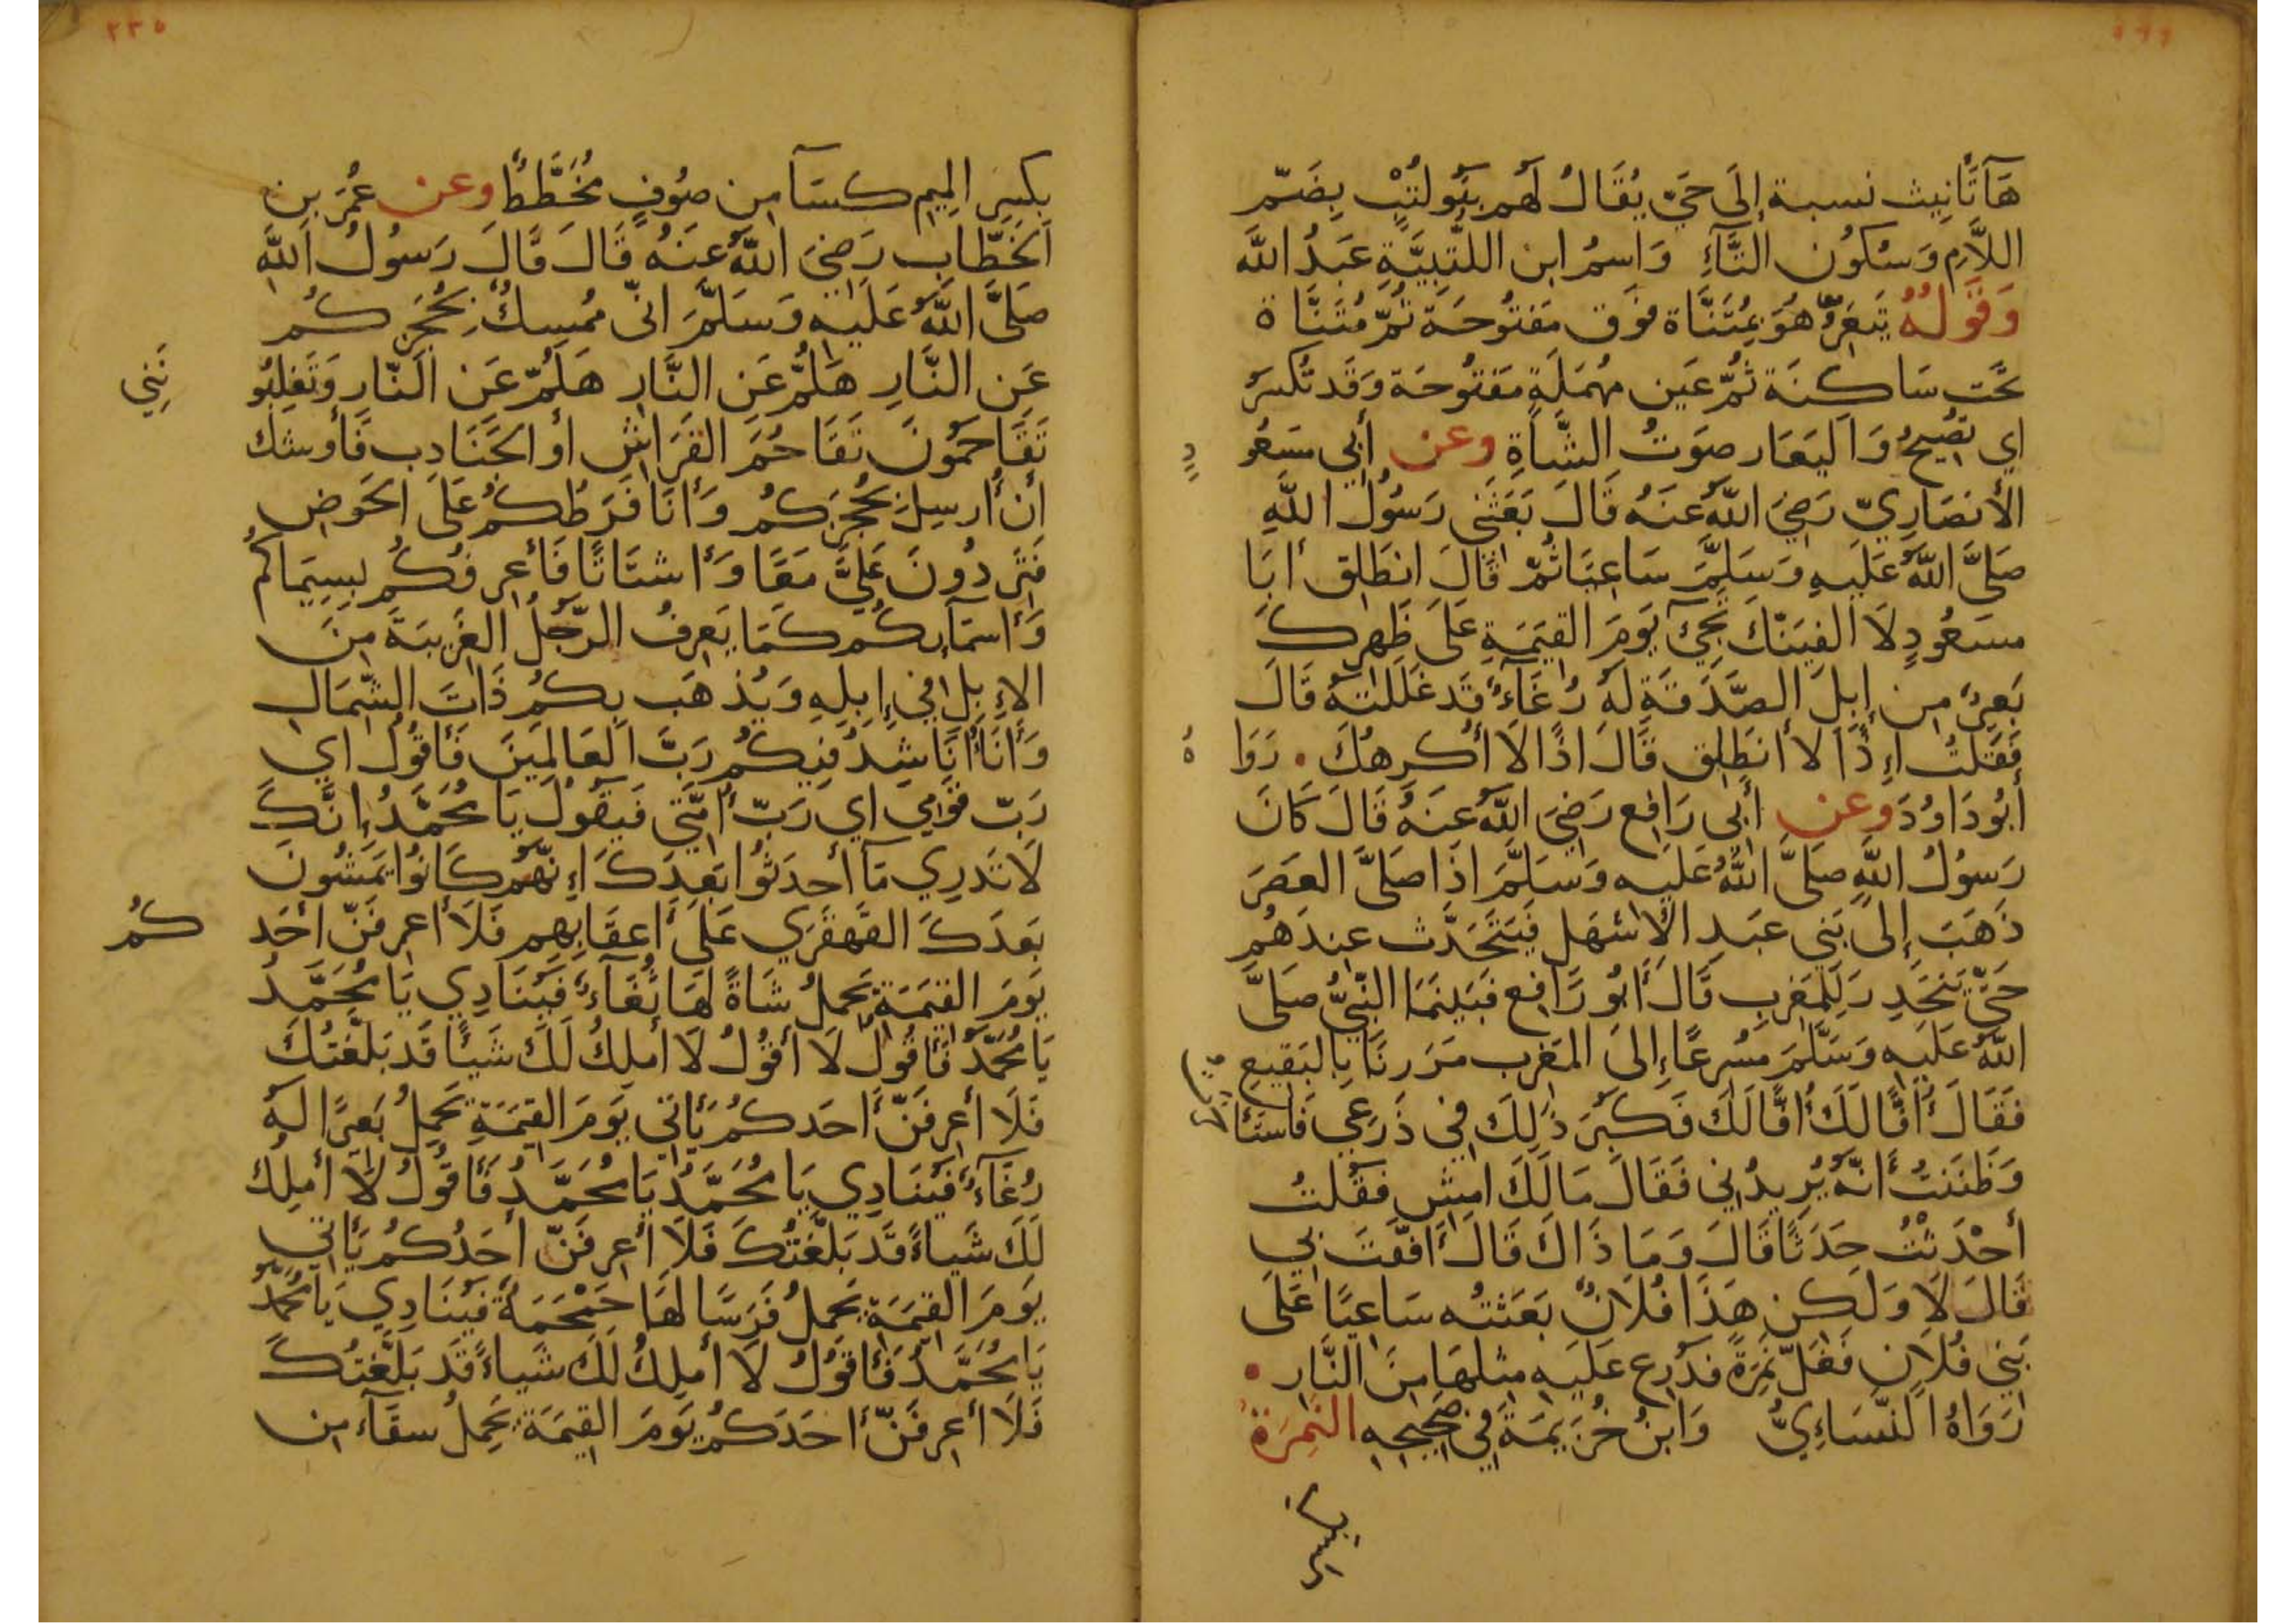 هَآتَأنِيث نسبة إلَى حَيّ يُقَالُ لَهُم بَنُو لُتْب بِضَمّ
اللاَّمِ وَسُكُون التَّآءِ وَاسمُ ابن اللتبِيَّةِ عَبدُ اللَّه
وَقَولُهُ تَيعَرُ هُوَ بمُثَنَّاة فوَق مَفتُوحَة ثُمّ مُثَنَّاة
تحَت سَاكِنَة ثُمّ عَين مُهمَلَةٍ مَفتُوحَة وَقَد تُكسَر
اي تصِيحُ وَاليعَار صَوتُ الشَّاةِ وعن أبي مسعُو
دٍ
الأنصَارِيّ رَضِيَ اللَّهُ عَنهُ قَالَ بَعَثَنِي رَسُولُ اللَّهِ
صَلَّى اللَّهُ عَلَيهِ وَسَلَّمَ سَاعِيًا ثُمّ قَالَ انطَلِق أبَا
مسعُودٍ لاَ الفِيَنّكَ تَجِيءُ يَومَ القِيَمَةِ عَلَى ظَهرِكَ
بَعِيرٌ مِن إِبِلِ الصَّدَقَةِ لَهُ رُغَآءٌ قَد غَلَلتَهُ قَالَ
فَقُلتُ إِذًا لاَ أنطَلِق قَالَ اذًا لاَ أكرِهُكَ . رَوَا
هُ
أبُو دَاوُدَ وعن أبي رَافِع رَضِيَ اللَّهُ عَنهُ قَالَ كَانَ
رَسُولُ اللَّهِ صَلَّى اللَّهُ عَلَيهِ وَسَلَّمَ اذَا صَلَّى العَصرَ
ذَهَبَ إِلَى بَنِي عَبدِ الأشهَل فَيَتَحَدَّث عِندَهُم
حَتّى يَنحَدِرَ لِلمَغرِبِ قَالَ أبُو رَافِع فَبَينمَا النّبِيُّ صَلَّى
اللَّهُ عَلَيهِ وَسَلَّمَ مُسرِعًا إِلَى المَغرِب مَرَرنَا بِالبَقِيعِ
فَقَالَ أفًّا لَكَ أفًّا لَكَ فَكَبُرَ ذَلِكَ فِي ذَرعِي فَاستَأ
وَظَنَنتُ أنّهُ يُرِيدُنِي فَقَالَ مَالَكَ امشِ فَقُلتُ
أحْدَثْتُ حَدَثًا قَالَ وَمَا ذَاكَ قَالَ أفّفتَ بِي
قَالَ لاَ وَلَكِن هَذَا فُلاَنٌ بَعَثتُه سَاعِيًا عَلَى
بَنِي فُلاَن فَغَلّ نَمِرَةً فدُرِع عَلَيهِ مِثلهَا مِنَ النَّار .
رَوَاهُ النَّسَاءِيُّ وَابنُ خُزَيمَةَ فِي صَحِيحِهِ النَمِرَةُ
بِكَسِر
بِكَسِر المِيمِ كسَآ مِن صُوفٍ مُخَطَّطٌ وعن عُمَرَ بنِ
الخَطَّاب رَضِيَ اللَّهُ عَنهُ قَالَ قَالَ رَسُولُ اللَّه
صَلَّى اللَّهُ عَلَيهِ وَسَلَّمَ انّي مُمسِكٌ بِحُجَزِكُم
عَنِ النَّارِ هَلُمَّ عَنِ النَّارِ هَلُمّ عَنِ النّارِ وَتَغلِبُو
نَنِي
تَقَاحَمُونَ تَقَاحُمَ الفَرَاشِ أو الجَنَادِب فَأوشك
أن أرسِلَ بِحُجَزِكُم وَأنَا فَرَطُكُم عَلَى الحَوضِ
فَتَرِدُونَ عَلَيَّ مَعًا وَأشتَاتًا فَأعرِفُكُم بِسِيمَاكُم
وَأسمَآيِكُم كَمَا يَعرِفُ الرّجُلُ الغَرِيبَةَ مِنَ
الإِبِلِ فِي إِبِلِهِ وَيُذهَب بِكُم ذَاتَ الشّمَالِ
وَأنَا أنَاشِدُ فِيكُم رَبَّ العَالَمِينَ فَأقُولُ اي
رَبّ قَومِي اي رَبّ أمّتِي فَيقُولُ يَا مُحَمَّدُ إِنَّكَ
لاَ تَدرِي مَآ أحدَثُوا بَعدَكَ إِنّهُم كَانُوا يَمشُونَ
بَعدَكَ القَهقَرِي عَلَى أعقَابِهِم فَلاَ أعرِفَنّ أحَد
كُم
يَومَ القِيَمَةِ يَحمِلُ شَاةً لَهَا ثُغَآءٌ فَيُنَادِي يَا مُحَمَّدُ
يَا مُحَمَّدُ فَأقُولُ لاَ أقُولُ لاَ أملِكُ لَكَ شَيئًا قَد بَلّغتُكَ
فَلاَ أعرِفَنّ أحَدكُم يَأتِي يَومَ القِيَمَةِ يَحمِلُ بَعِيرًا لَهُ
رُغَآءٌ فَيُنَادِي يَا مُحَمَّدُ يَا مُحَمَّدُ فَأقُولُ لاَ أملِكُ
لَكَ شَياءً قَد بَلَّغتُكَ فَلاَ أعرِفَنّ أحَدُكُم يَأتِي
يَومَ القِيَمَةِ يَحمِلُ فَرَسًا لَهَا حَمْحَمَةٌ فَيُنَادِي يَا مُحَمَّدُ
يَا مُحَمَّدُ فَأقُولُ لاَ أملِكُ لَكَ شَياءً قَد بَلَّغتُكَ
فَلاَ أعرِفَنّ أحَدَكُم يَومَ القِيَمَةِ يَحمِلُ سقَآء مِن